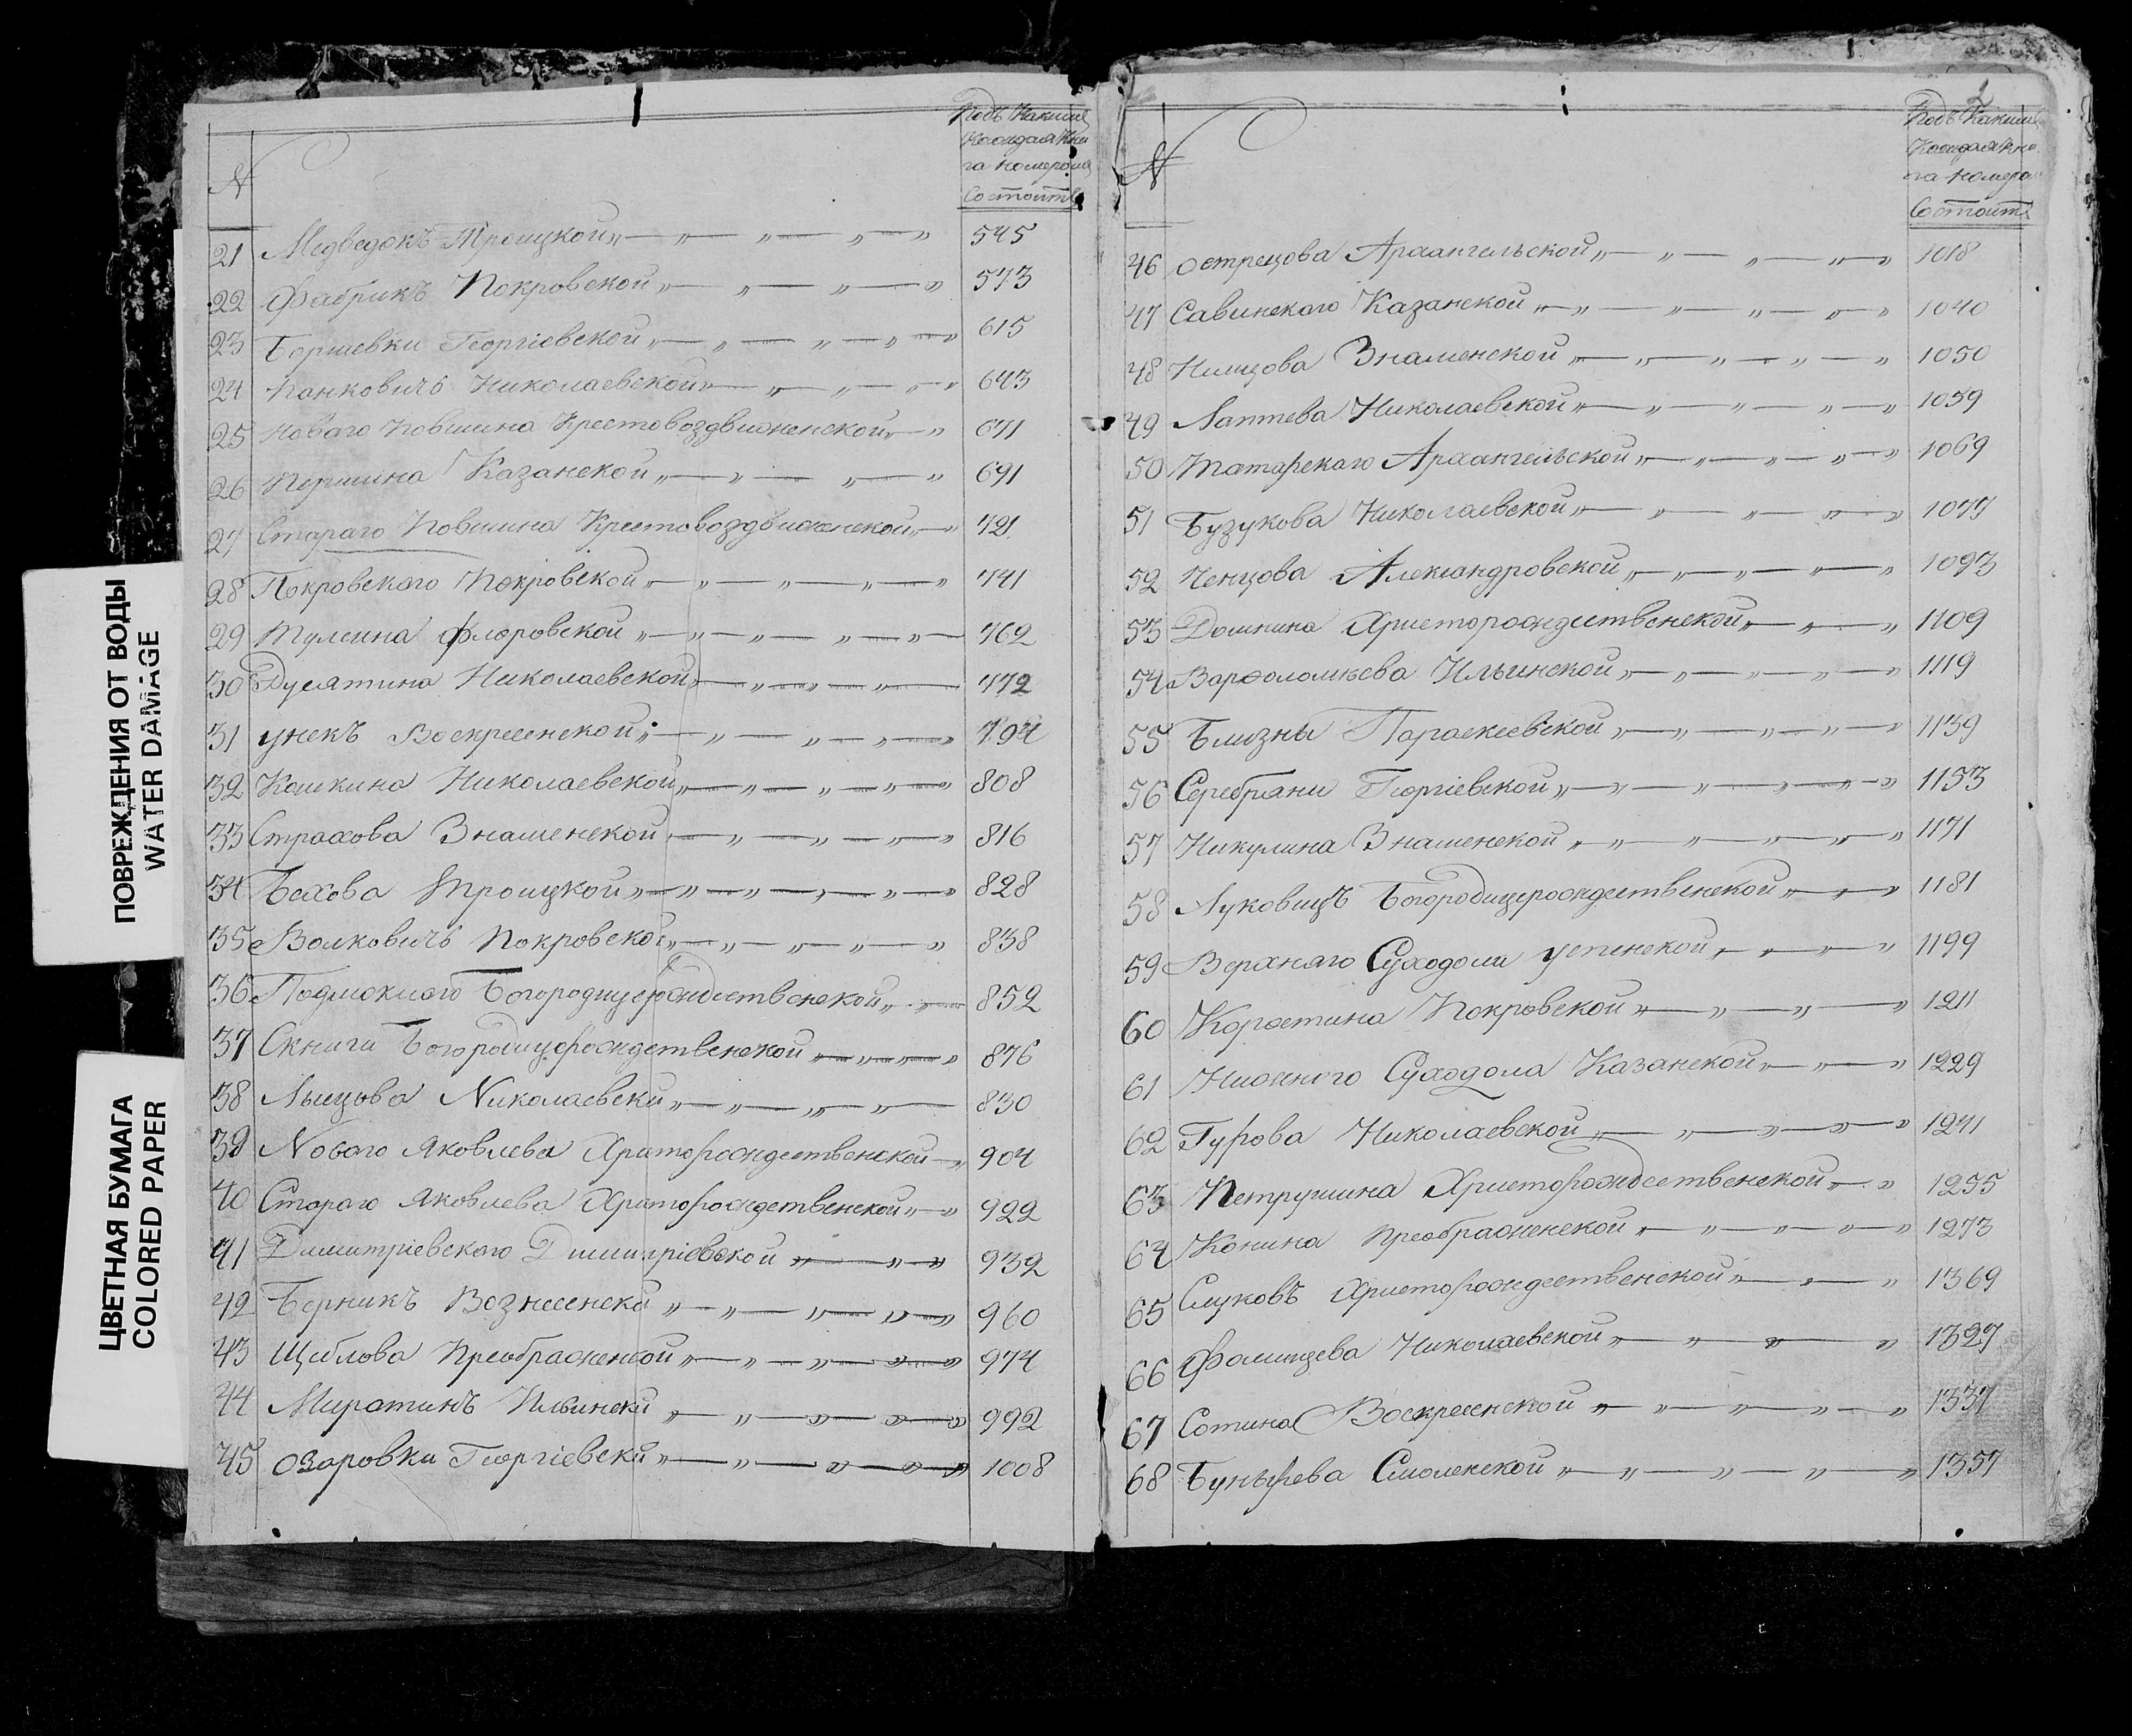 ПОВРЕЖДЕНИЯ ОТ ВОДЫ
WATER DAMAGE
ЦВЕТНАЯ БУМАГА
COLORED PAPER
№ Подъ Какимъ
Каждая Кни
га номеромъ
Состоитъ
21 Медведокъ Троицкой „ — „ — „ — „ — „ 545
22 Фабрикъ Покровской „ — „ — „ — „ 573
23 Боршевки Георгіевской „ — „ — „ — „ — „ 615
24 Панковичъ Николаевской „ — „ — „ — „ 643
25 Новаго Повшина Крестовоздвиженской „ — „ 671
26 Першина Казанской „ — „ — „ — „ 691
27 Стараго Повшина Крестовоздвиженской „ — „ 721
28 Покровскаго Покровской „ — „ — „ — „ — „ 741
29 Тулеина Флоровской „ — „ — „ — „ — „ — 762
30 Дусятина Николаевской — „ — „ — „ — 772
31 Унекъ Воскресенской „ — „ — „ — „ — „ 794
32 Кошкина Николаевской „ — „ — „ — „ — „ 808
33 Страхова Знаменской „ — „ — „ — „ — „ 816
34 Бехова Троицкой „ — „ — „ — „ — „ — „ 828
35 Волковичъ Покровской „ — „ — „ — „ — „ 838
36 Подмоклаго Богородицерождественской „ — „ — 852
37 Скниги Богородицерождественской „ — „ — „ — „ 876
38 Лыщова Николаевски „ — „ — „ — „ — 830
39 Новаго Яковлева Христорождественской — „ 904
40 Стараго Яковлева Христорождественской „ — „ 922
41 Димитріевскаго Димитріевской „ — „ — „ 932
42 Берникъ Вознесенски „ — „ — „ — „ — „ 960
43 Щиблова Преображенской „ — „ — „ — „ — „ 974
44 Миротинъ Ильински „ — „ — „ — „ — „ 992
45 Озаровки Георгіевски „ — „ — „ — „ — „ 1008
№ Подъ Какимъ
Каждая Кни
га номеро
Состоитъ
46 Острецова Архангельской „ — „ — „ — „ — „ 1018
47 Савинскаго Казанской „ — „ — „ — „ — „ — „ 1040
48 Нимцова Знаменской „ — „ — „ — „ — „ 1050
49 Лаптева Николаевской „ — „ — „ — „ — „ 1059
50 Татарскаго Архангельской „ — „ — „ — „ — „ 1069
51 Бузукова Николаевской „ — „ — „ — „ — „ 1077
52 Ченцова Александровской „ — „ — „ — „ — „ 1093
53 Домнина Христорождественской „ — „ — „ 1109
54 Варфоломѣева Ильинской „ — „ — „ — „ — „ 1119
55 Близны Параскеевской „ — „ — „ — „ — „ 1139
56 Серебряни Георгіевской „ — „ — „ — „ — „ 1153
57 Никулина Знаменской „ — „ — „ — „ — „ — „ 1171
58 Луковицъ Богородицерождественской „ — „ — „ 1181
59 Верхнаго Суходоли Успенской „ — „ — „ — „ 1199
60 Коростина Покровской „ — „ — „ — „ 1211
61 Нижного Суходола Казанской „ — „ — „ 1229
62 Гурова Николаевской „ — „ — „ — „ — „ 1241
63 Петрушина Христорождественской „ — „ 1255
64 Конина Преображенской „ — „ — „ — „ — „ 1273
65 Слуковъ Христорождественской „ — „ — „ 1369
66 Фомищева Николаевской „ — „ — „ — „ 1327
67 Сотина Воскресенской „ — „ — „ — „ — „ 1337
68 Бунырева Смоленской „ — „ — „ — „ — „ 1357